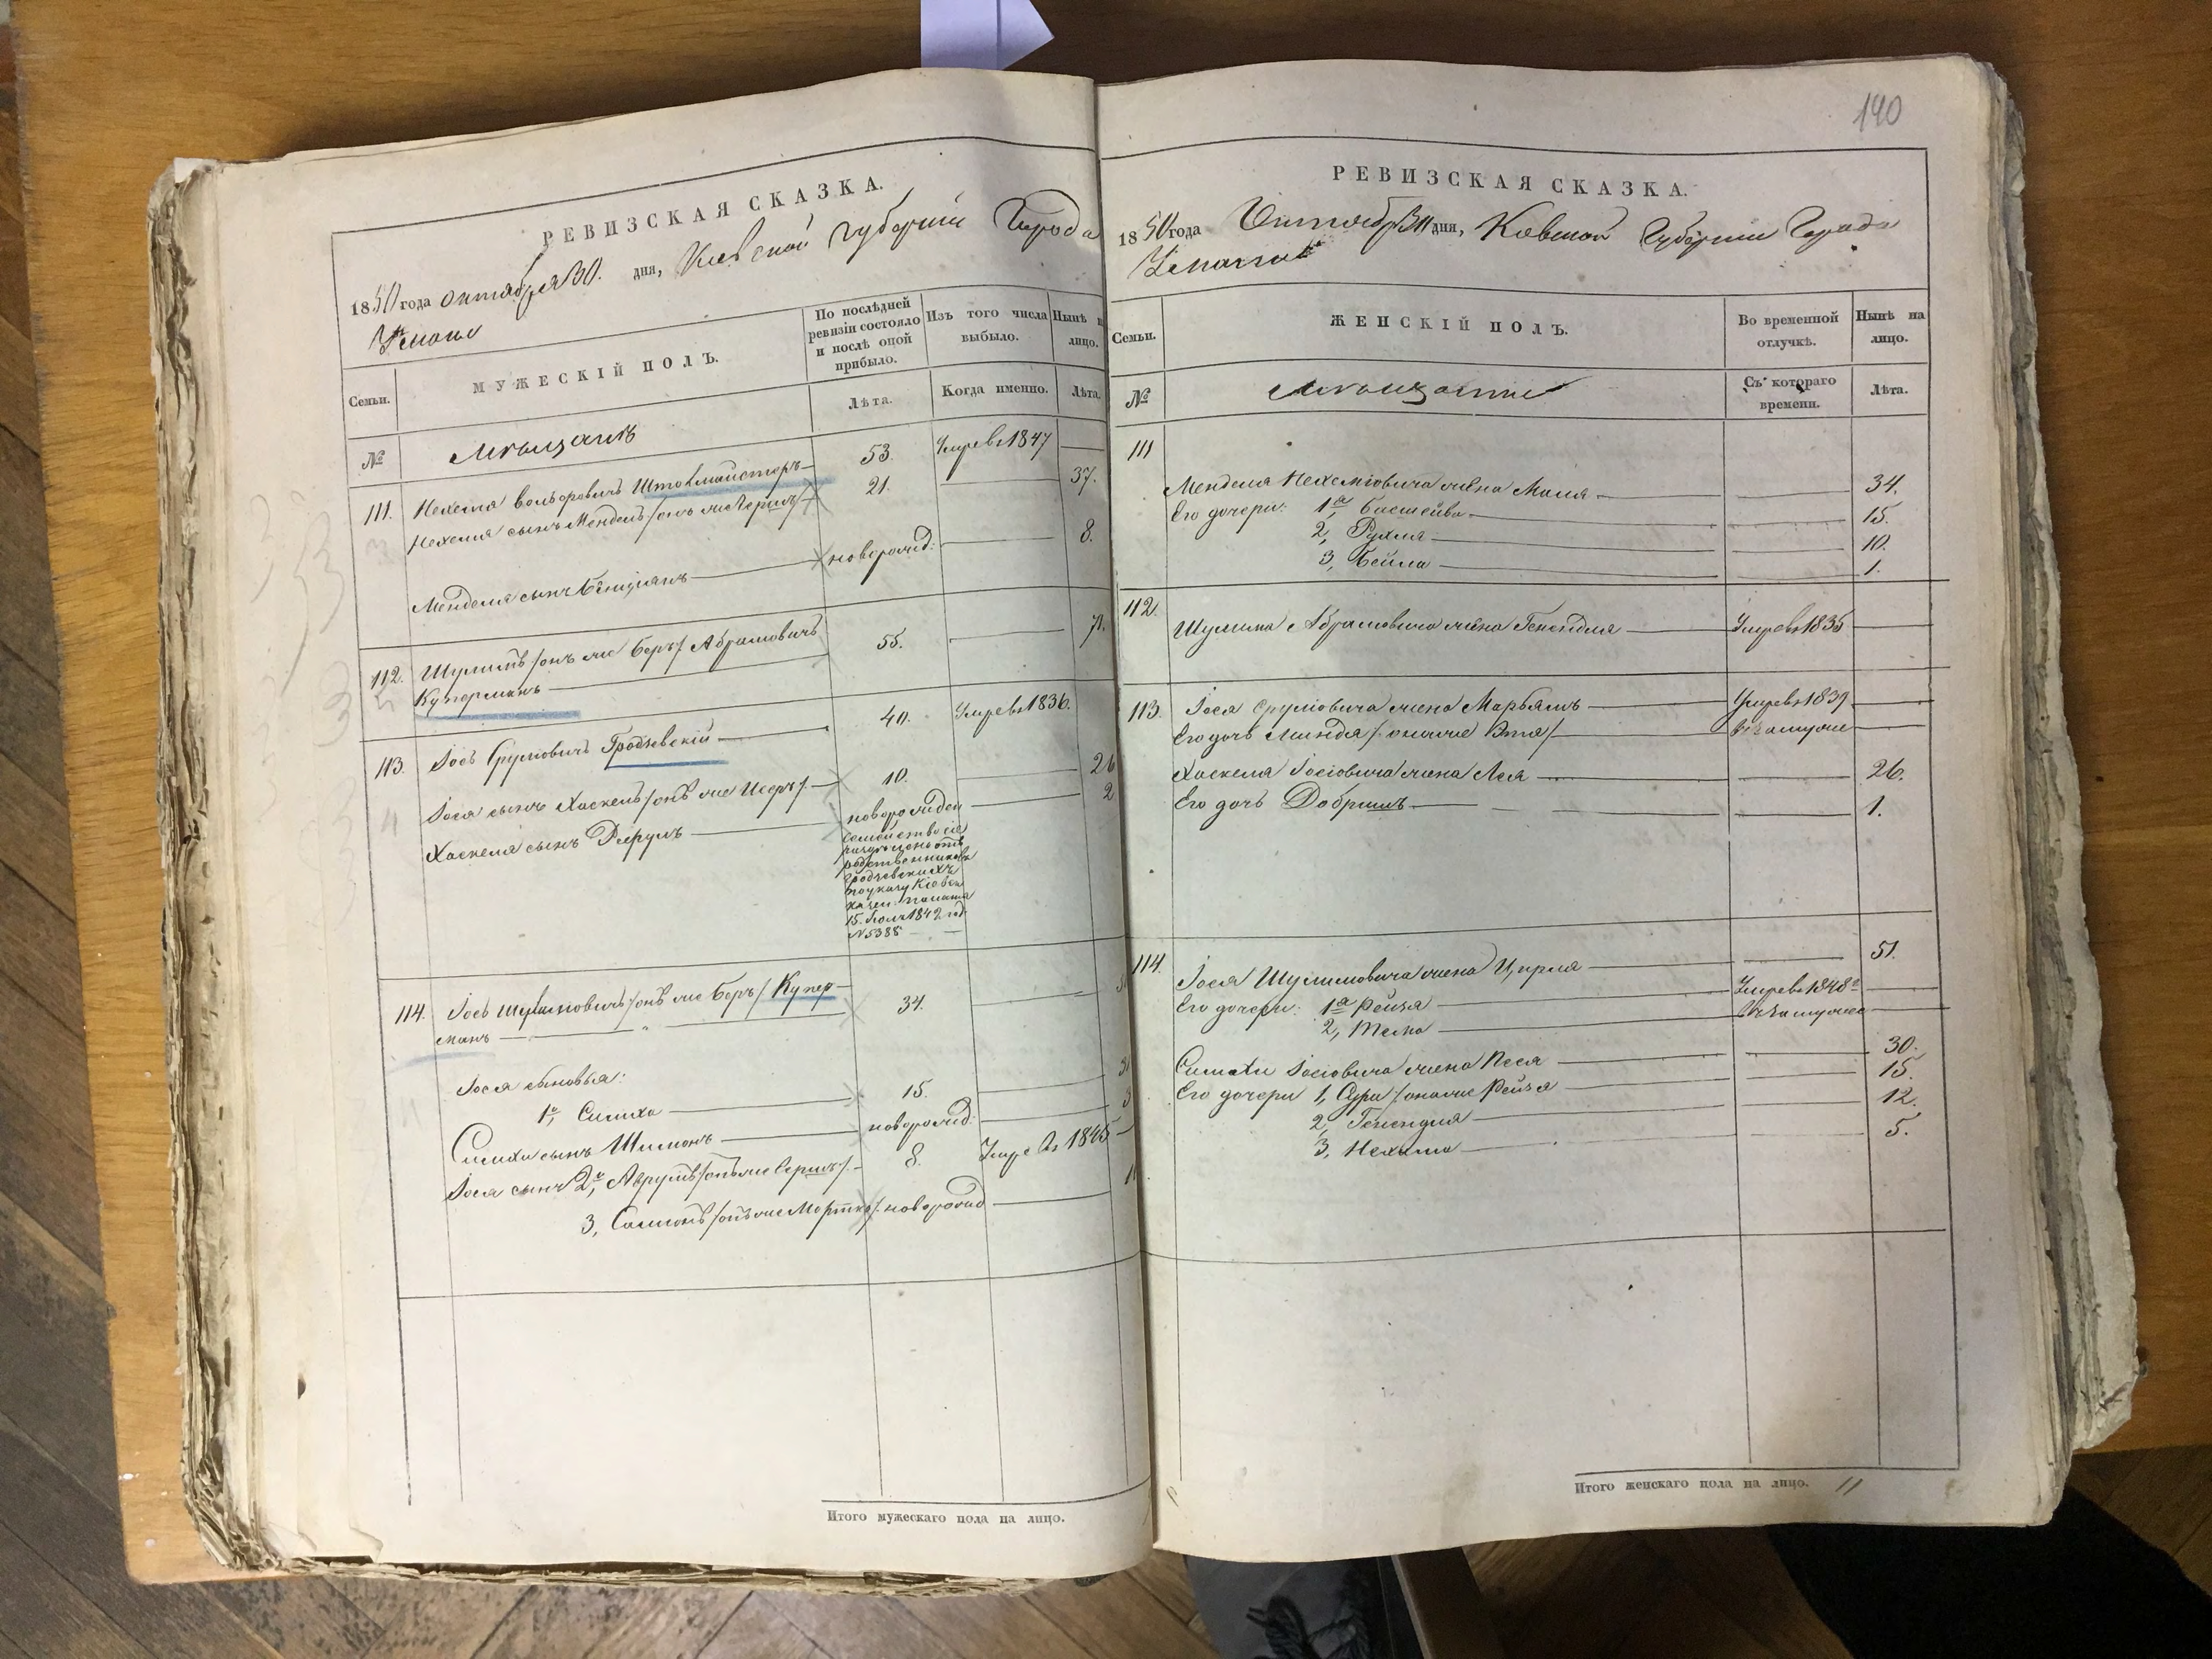 РЕВИЗСКАЯ СКАЗКА.
1850 года октября 30. дня, Киевской губернии Города
Умани
Семьи.
МУЖЕСКІЙ ПОЛЪ.
По послѣдней ревизіи состояло и послѣ оной прибыло.
Изъ того числа выбыло.
Нынѣ на лицо.
№
Мѣщанѣ
Лѣта.
Когда именно.
Лѣта.
111. Нехемя Вольфовичъ Штокмайстеръ 53. Умре въ 1847
Нехемя сынъ Мендель /онъ же Гершъ/ 21. 37.
Менделя сынъ Бенціянъ новорожд: 8.
112. Шулимъ /онъ же Беръ/ Абрамовичъ 55. 71.
Куперманъ
113. Іось Сруліовичъ Гродзевскій 40. Умре въ 1836.
Іося сынъ Хаскель /онъ же Исеръ/ 10. 26
Хаскеля сынъ новорожден 2
семейство сіе
отъ
родственниковъ
Гродзевскихъ
по указу Кіевск
казен. палаты
15. Іюля 1842 год
№ 5388
114. Іось Шулимовичъ /онъ же Беръ/ Купер- 34.
манъ
Іося сыновья:
1й, Симха 15.
Симхи сынъ Шимонъ новорожд:
Іося сынъ 2й, Аврумъ /онъ же Гершъ/ 8. Умре въ 1845
3, Симонъ /онъ же Мортко/ новорожд
Итого мужескаго пола на лицо.
190
РЕВИЗСКАЯ СКАЗКА.
1850 года Октября 30 дня, Киевской Губернии Города
Умани
Семьи.
ЖЕНСКІЙ ПОЛЪ.
Во временной отлучкѣ.
Нынѣ на лицо.
№
Мѣщанки
Съ котораго времени.
Лѣта.
111
Менделя Нехеміовича жена Маля 34.
Его дочери: 1я Басшейва 15.
2, Рухля 10.
3, Бейла 1.
112. Шулима Абрамовича жена Генендля Умре въ 1835
113. Іося Сруліовича жена Марьямъ Умре въ 1839
Его дочь Миндя /она же Этя/ въ замуже
Хаскеля Іосіовича жена Лея 26.
Его дочь Добришъ 1.
114. Іося Шулимовича жена Ципря 51.
Его дочери: 1я Рейзя Умре въ 1848 г
2, Темa въ замуже
Симхи Іосіовича жена Песя 30.
Его дочери 1, Сура /она же Рейзя 15.
2, Генендля 12.
3, Нехама 5.
Итого женскаго пола на лицо. 11